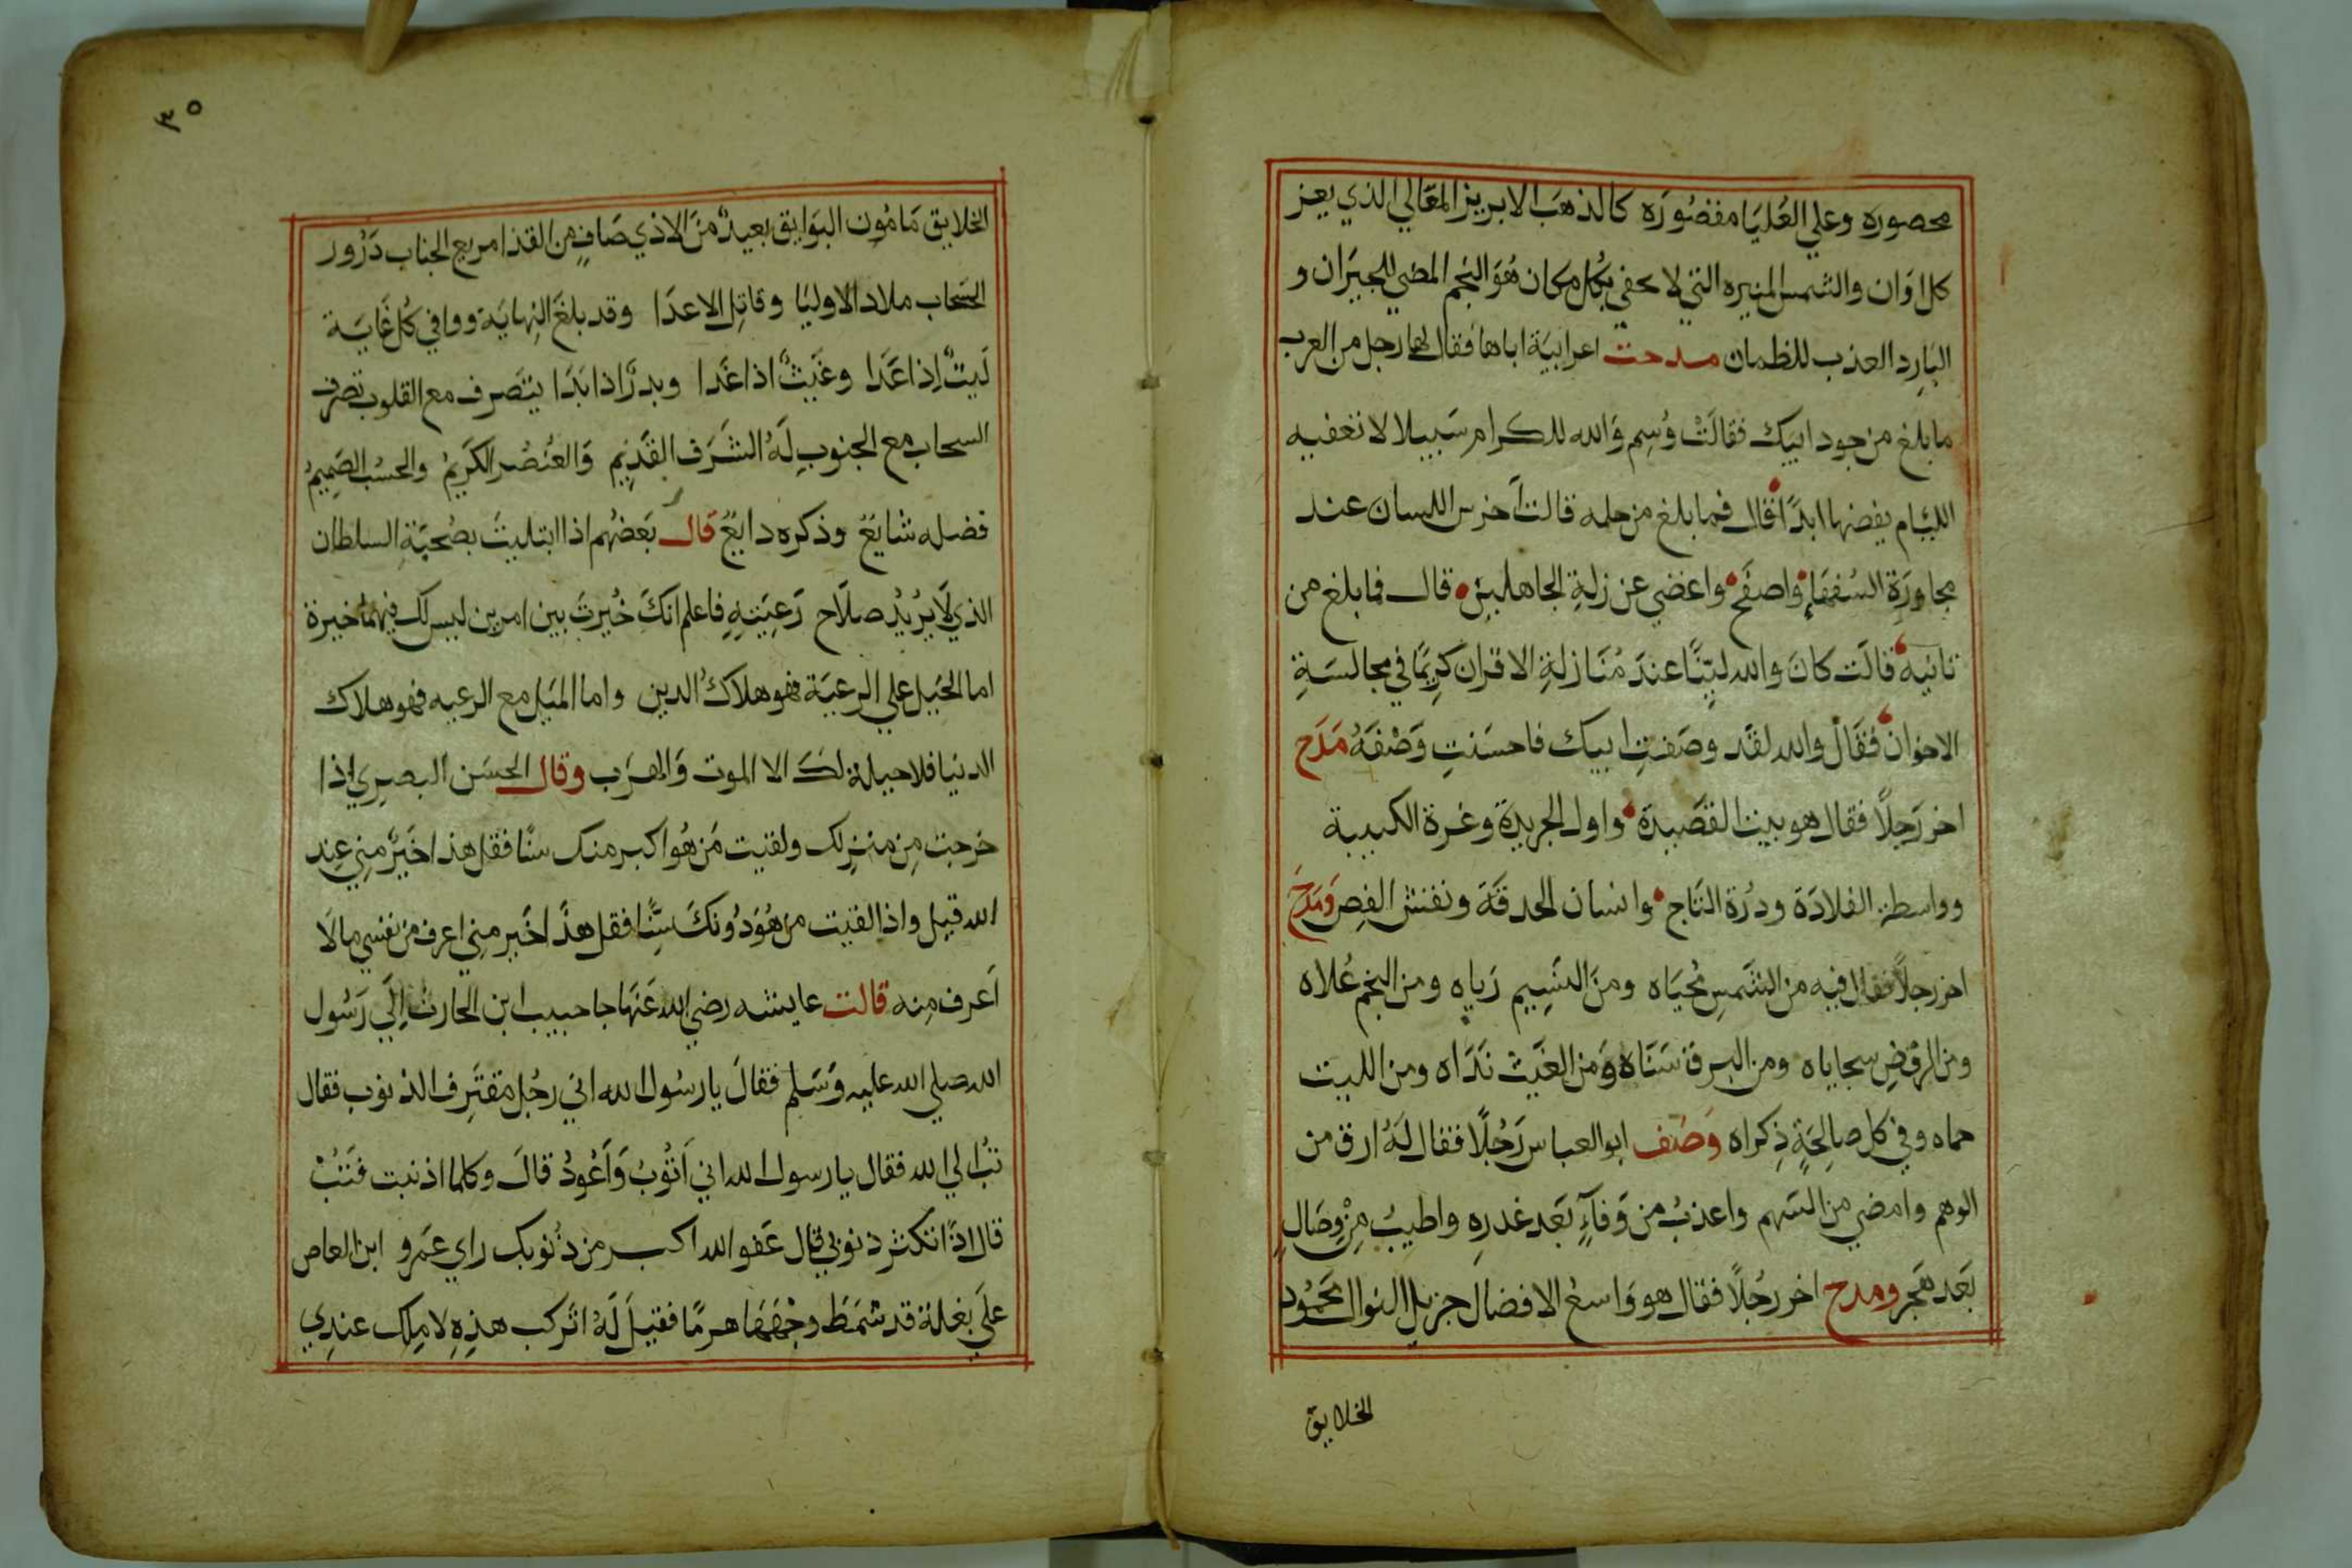 محصوره وعلي العُليَا مقصُورَه كالذهَب الابريز المعَالي الذي يعز
كل اوَان والشمس المنيره التي لا تحفي بكُل مكان هُوَ النجم المضي للجيرَان و
البَارِد العذب للظمان مدحت اعرابيَة اباها فقال لها رجل من العرب
ما بلغ من جود ابيك فقالَتْ وُسِم وَالله للكرام سَبيلا لا تغفيه
الليام يفضها ابدًا قال فما بلغ من حلمه قالت اَخرس اللسان عند
مجاورَة السُفهَاءِ واصفَح واغضي عن زلةِ الجاهلين قال فما بلغ من
تانيه قالَت كانَ والله ليثًا عندَ مُنَازلةِ الاقران كرِيمًا في مجالسَةِ
الاخوَان فقَالْ والله لقَد وصَفتِ ابيك فاحسَنتِ وَصْفَهُ مَدَح
اخر رَجلًا فقال هو بيت القصَيدة واول الجريدة وغرة الكتيبة
وواسطة القلادَة ودرُة التَاج وانسان الحدقَة ونقش الفصِ وَمَدَحَ
اخر رجلًا فقال فيه من الشمسِ مُحيَاه ومنَ النسَيِم رَياه ومن النجم عُلاه
ومن الروُضِ سجاياه ومن البرق سَنَاه وَمن الغَيث نَدَاه ومن الليت
حماه وفي كل صالِحَةٍ ذِكراه وَصَف ابو العباس رَجُلًا فقال لَهُ ارق من
الوهم وامضي من السَهم واعذبُ من وَفآءٍ بَعَد غدرِه واطيبُ مِنْ وِصَالٍ
بَعَد هَجر ومدح اخر رجُلًا فقال هو وَاسعُ الافضال جزيل النوال محَمُود
الخلايق
٣٥
الخلايق مَامُون البوَايق بعيدٌ منَ الاذي صَافٍ من القذا مريع الجناب دَرُور
السَحاب ملاد الاوليَا وقاتِل الاعدَا وقد بلغَ النِهايَة ووافي كُل غَايَة
لَيثٌ اِذا عَدَا وغَيثٌ اذا غَدا وبدرًا ذا بَدَا يتَصَرف مع القلوب تصَرف
السحاب مع الجنوبِ لَهُ الشَرَف القَدِيم وَالعُنصُر الكَرِيمُ والحسُب الصَمِيمُ
فضله شايعٌ وذكره دايعٌ قال بَعَضُهم اذا ابتليتُ بصُحبَةِ السلطان
الذي لَا يُريُد صلَاح رَعِيَتِهِ فاعلم انكَ خُيرتَ بين امرين ليس لك فيهمَا خيرة
اما الميَل علي الرعيَة فهو هلاكُ الدين واما الميَل مع الرعيه فهو هلاك
الدنيا فلا حيلة لكَ الا الموت وَالهَرَب وقال الحسَن البصِري اِذا
خرجت مِن منزِلك ولقيت مَن هُو اكبر منك سنًا فقل هذا خَيرٌ منِي عِند
الله قبل واذا لقيت من هُوَ دُونكَ سنًّا فقل هذَا خَير مني اعرف من نفسي ما لَا
اَعرف مِنه قالت عايشه رضي الله عَنَها جا حبيب ابن الحارث اِلَي رَسُول
الله صلي الله عليه وَسَلم فقالَ يا رسُول الله اني رجُل مقتَرِف الذنوُب فقال
تُب الي الله فقال يا رسول الله اني اَتُوبُ وَاَعُودُ قالَ وكلما اذنبت فَتُبْ
قال اذًا تكثر ذنوبي قال عَفو الله اكبر من دُنوبك راي عَمرو ابن العاص
علَي بغلة قد شمَطَ وجْهَهَا هرمًا فقيلَ لَهُ اترَكب هذِهِ لا مِلك عندِي